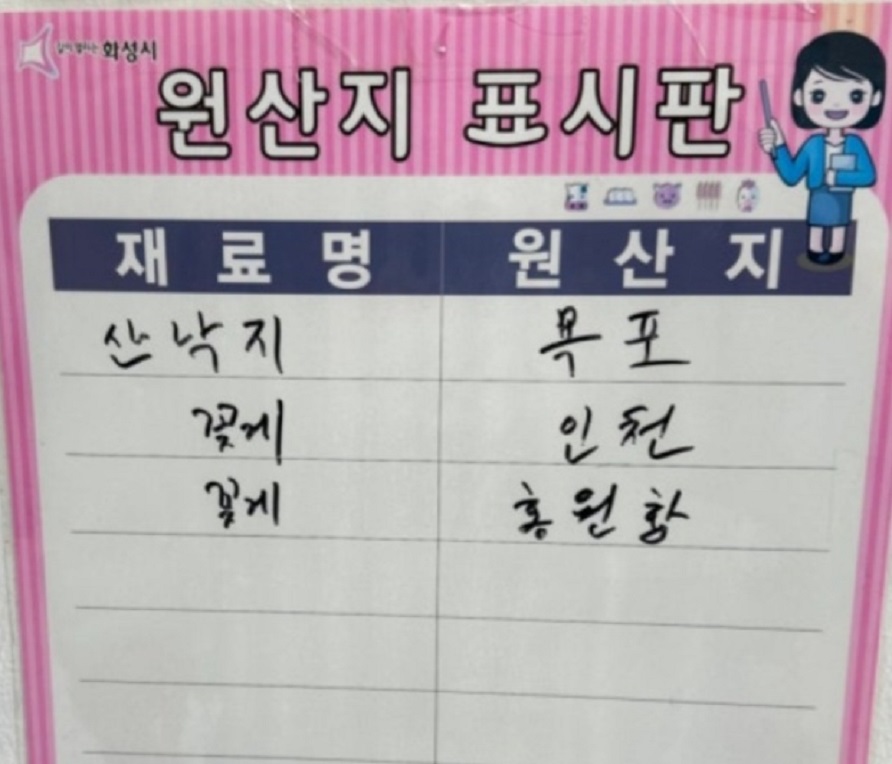 화성시
원산지 표시판
재료명 원산지
산낙지 목포
꽃게 인천
꽃게 홍원항